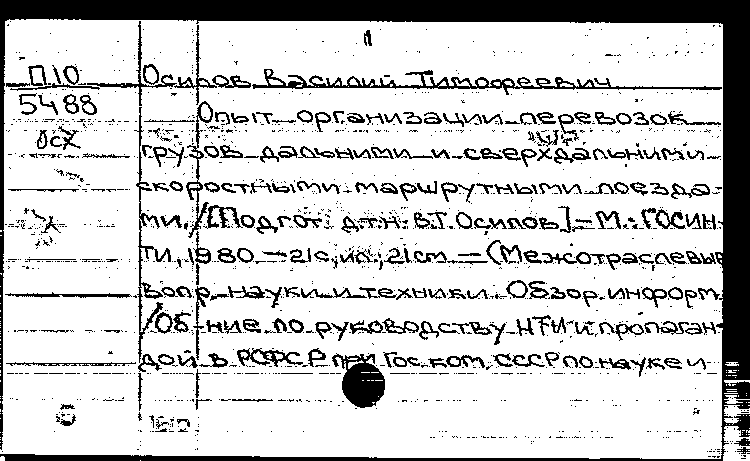 1
П10 Осипов Василий Тимофеевич
5488 Опыт организации перевозок
осх грузов дальними и сверхдальними
скоростными маршрутными поезда-
ми. /[Подгот. д.т.н. В.Т. Осипов]-М.: ГОСИН-
ТИ, 1980. -21с, ил., 21см -(Межотраслевые
вопр. науки и техники. Обзор. информ.
/Об-ние по руководству НТИ и пропаган-
дой в РСФСР при Гос. ком. СССР по науке и